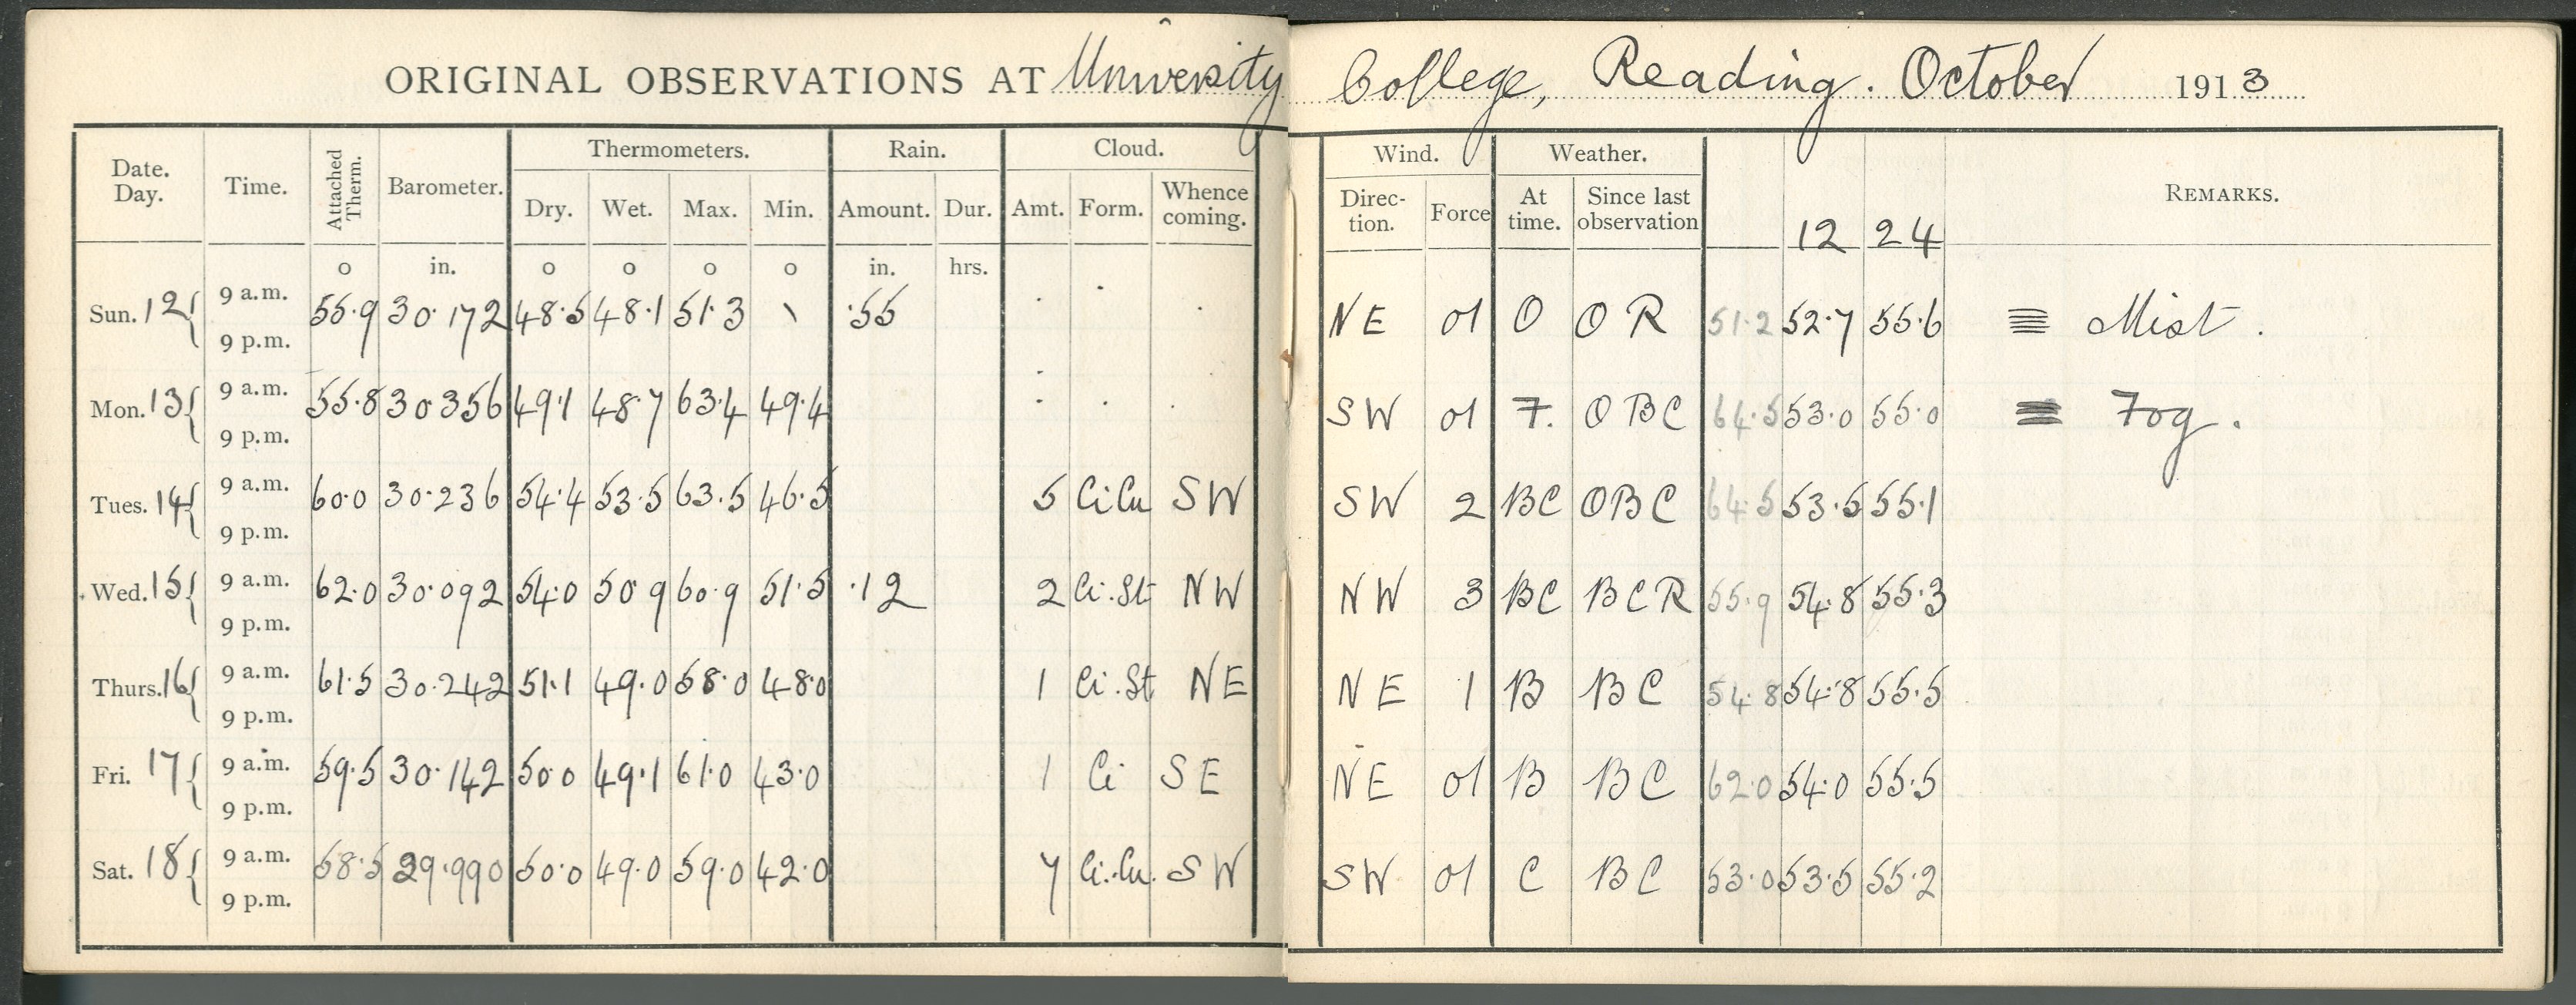 ORIGINAL OBSERVATIONS AT University College, Reading. October 1913
Date. Day. Time. Attached Therm. Barometer. Thermometers. Rain. Cloud. Wind. Weather. REMARKS.
Dry. Wet. Max. Min. Amount. Dur. Amt. Form. Whence coming. Direc-tion. Force At time. Since last observation 12 24
o in. o o o o in. hrs.
Sun. 12 { 9 a.m. 9 p.m. 55.9 30.172 48.5 48.1 51.3 \ .55 . . . NE 01 O O R 51.2 52.7 55.6 ≡ Mist.
Mon. 13 { 9 a.m. 9 p.m. 55.8 30.356 49.1 48.7 63.4 49.4 . . . SW 01 F. O B C 64.5 53.0 55.0 ≡ Fog.
Tues. 14 { 9 a.m. 9 p.m. 60.0 30.236 54.4 53.5 63.5 46.5 5 Ci Cu SW SW 2 BC OBC 64.5 53.5 55.1
Wed. 15 { 9 a.m. 9 p.m. 62.0 30.092 54.0 50.9 60.9 51.5 .12 2 Ci.St NW NW 3 BC BCR 55.9 54.8 55.3
Thurs. 16 { 9 a.m. 9 p.m. 61.5 30.242 51.1 49.0 58.0 48.0 1 Ci.St NE NE 1 B BC 54.8 54.8 55.5
Fri. 17 { 9 a.m. 9 p.m. 59.5 30.142 50.0 49.1 61.0 43.0 1 Ci SE NE 01 B BC 62.0 54.0 55.5
Sat. 18 { 9 a.m. 9 p.m. 58.5 29.990 50.0 49.0 59.0 42.0 7 Ci.Cu. SW SW 01 C BC 53.0 53.5 55.2